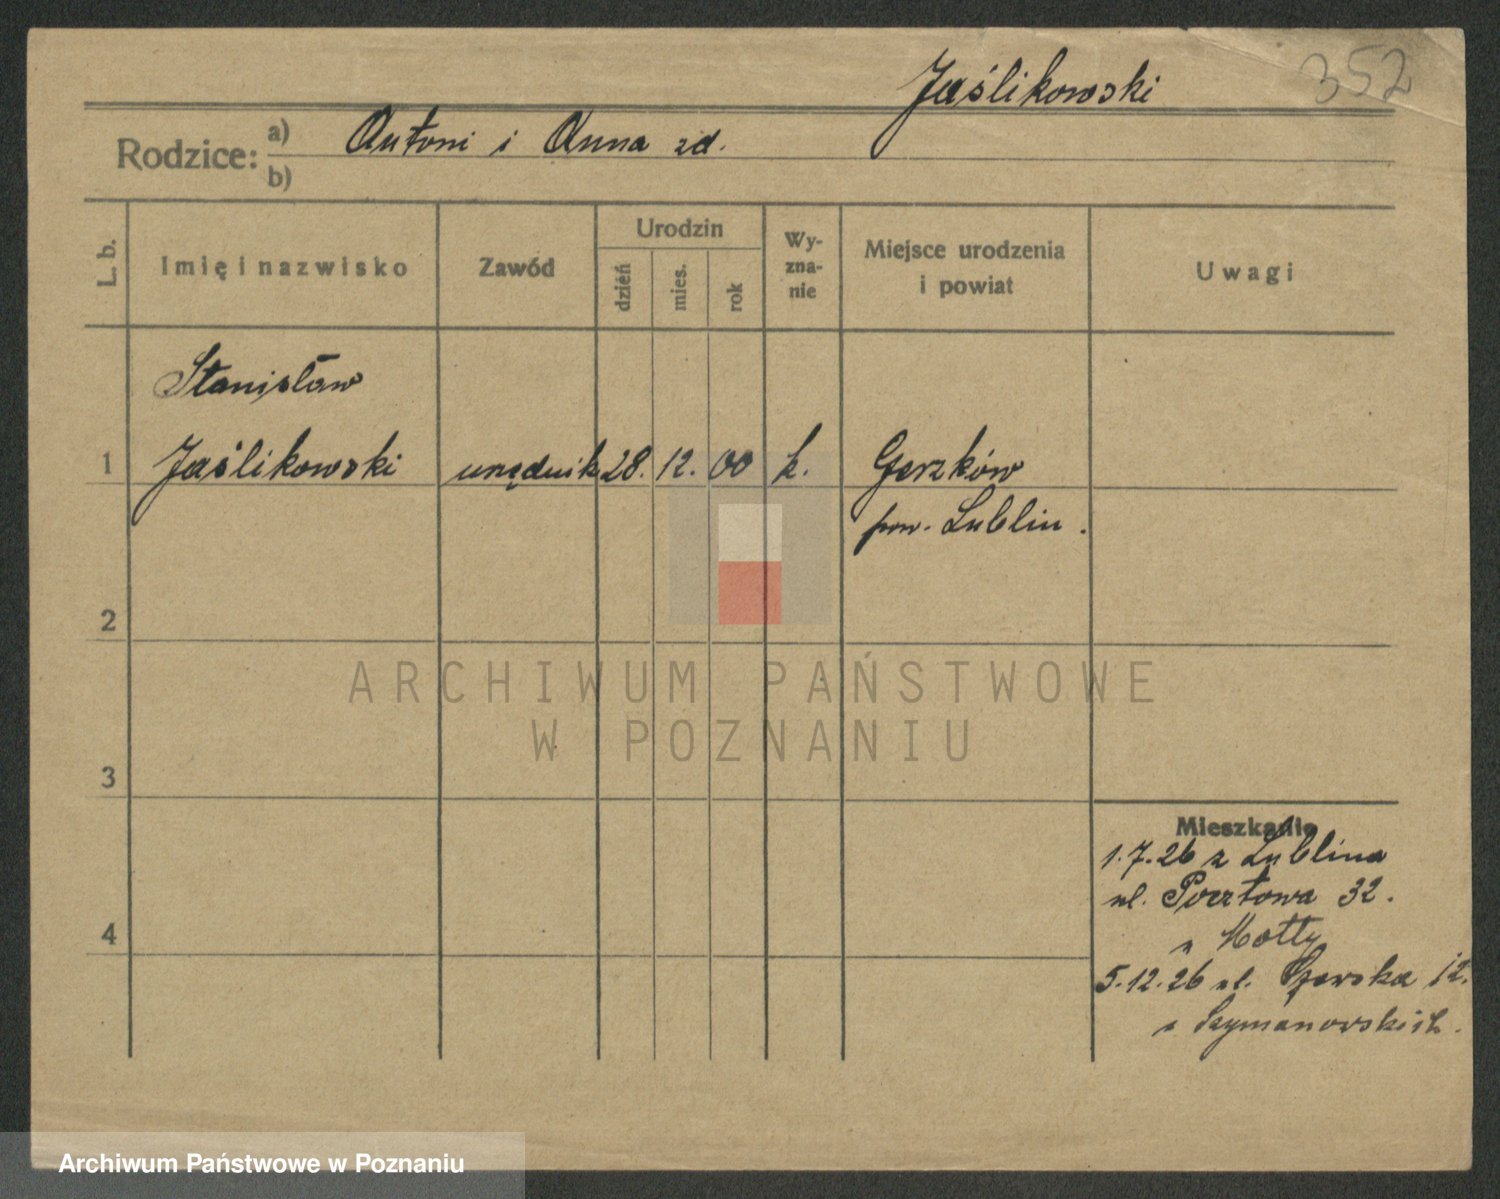 Jaślikowski
352
Rodzice:
a) Antoni i Anna zd.
b)
L. b.
Imię i nazwisko
Zawód
Urodzin
dzień
mies.
rok
Wy-
zna-
nie
Miejsce urodzenia
i powiat
Uwagi
Stanisław
1 Jaślikowski urzędnik 28. 12. 00 k. Gorzków
pow. Lublin.
2
3
4
Mieszkanie
1.7.26 z Lublina
ul. Pocztowa 32.
u Motty
5.12.26 ul. 12.
u Szymanowskich.
ARCHIWUM PAŃSTWOWE
W POZNANIU
Archiwum Państwowe w Poznaniu